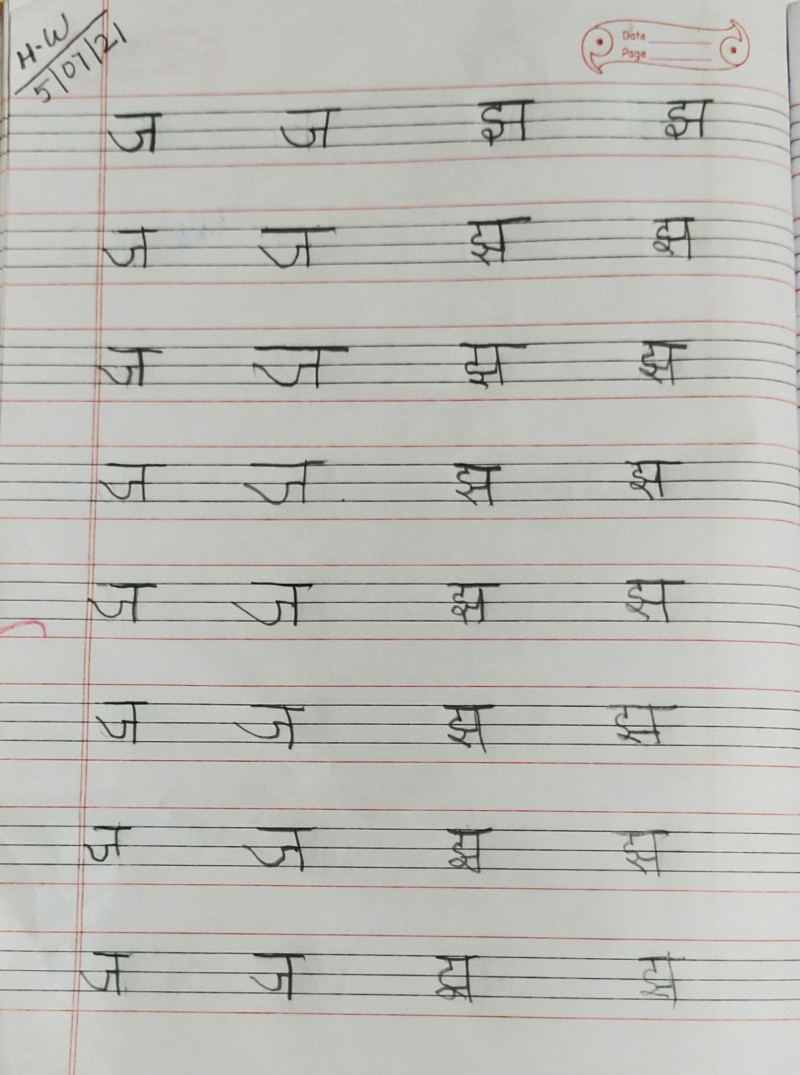 H.W
5/07/21
Date
Page
ज ज झ झ
ज ज झ झ
ज ज झ झ
ज ज झ झ
ज ज झ झ
ज ज झ झ
ज ज झ झ
ज ज झ झ